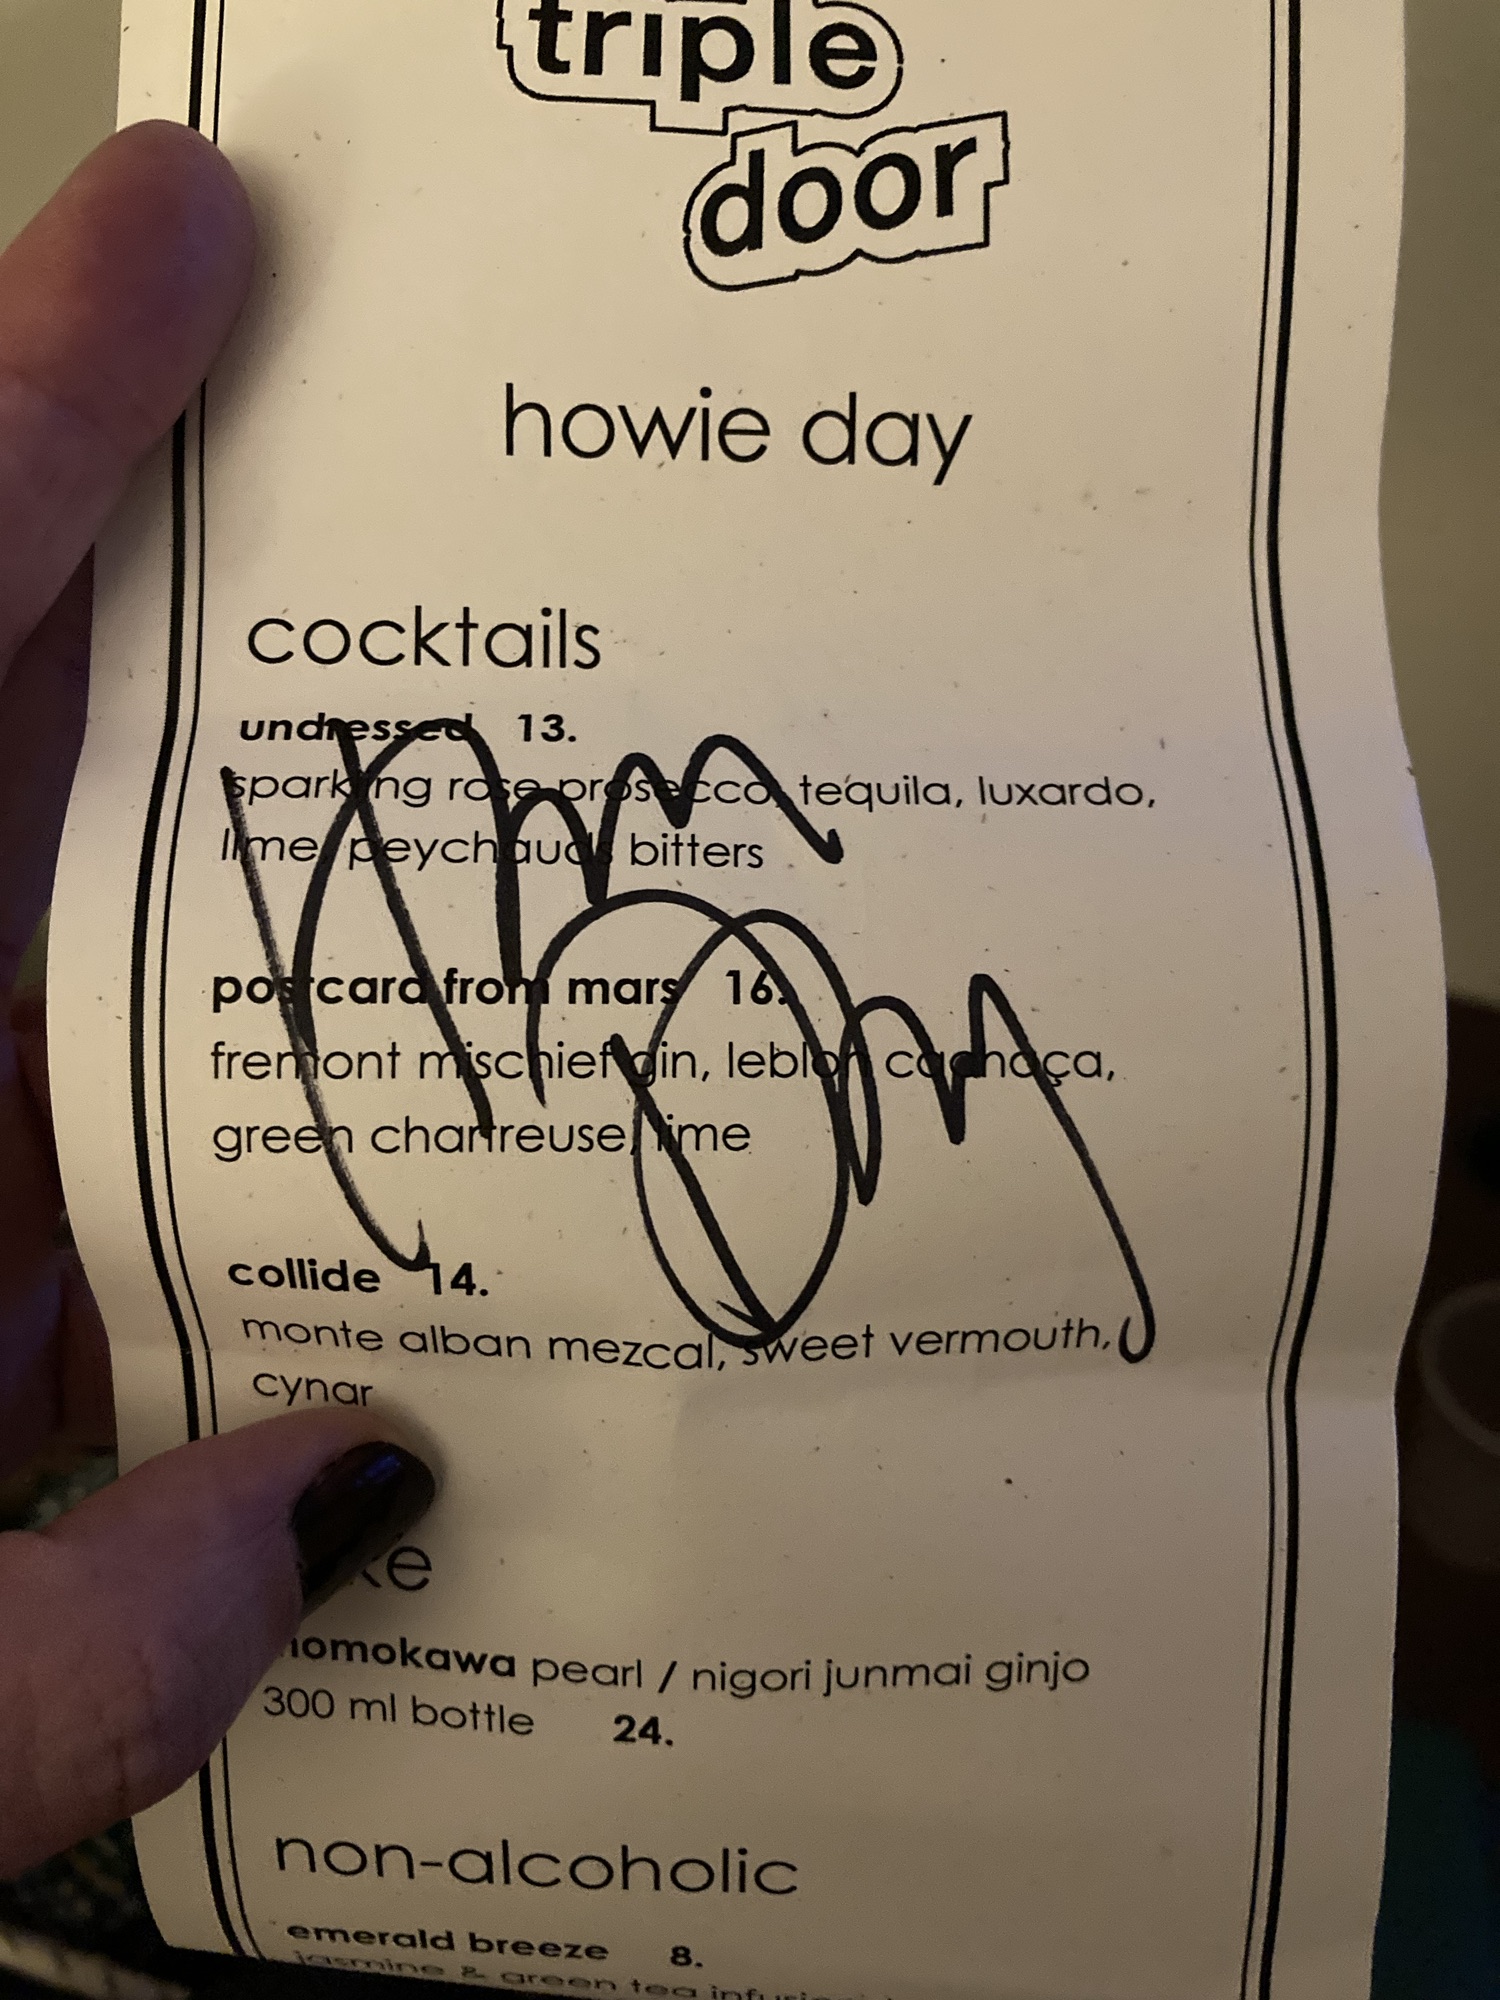 triple
door
howie day
cocktails
undressed 13.
sparkling rose prosecco, tequila, luxardo,
lime, peychauds bitters
postcard from mars 16.
fremont mischief gin, leblon cachaça,
green chartreuse, lime
collide 14.
monte alban mezcal, sweet vermouth,
cynar
pearl / nigori junmai ginjo
300 ml bottle 24.
non-alcoholic
emerald breeze 8.
jasmine & green tea